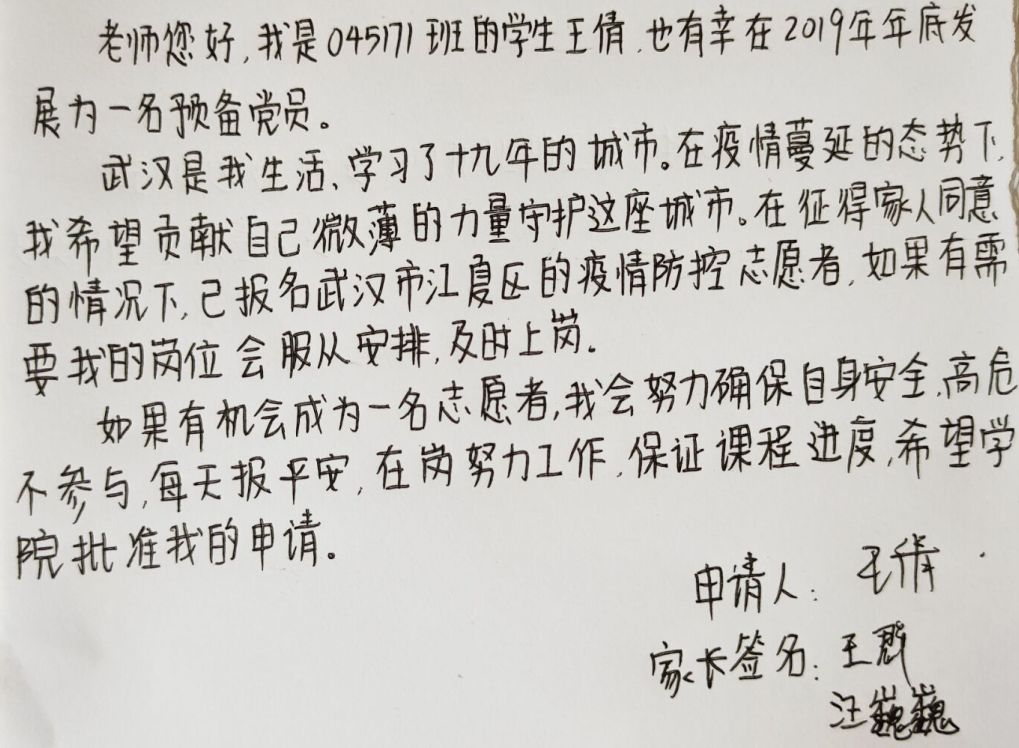 老师您好,我是045171班的学生王倩,也有幸在2019年年底发
展为一名预备党员。
武汉是我生活、学习了十九年的城市。在疫情蔓延的态势下,
我希望贡献自己微薄的力量守护这座城市。在征得家人同意
的情况下,已报名武汉市江夏区的疫情防控志愿者,如果有需
要我的岗位会服从安排,及时上岗.
如果有机会成为一名志愿者,我会努力确保自身安全,高危
不参与,每天报平安,在岗努力工作,保证课程进度,希望学
院批准我的申请。
申请人:王倩
家长签名:王
汪巍巍